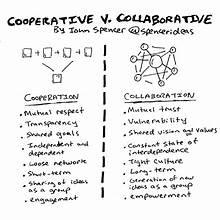 COOPERATIVE V. COLLABORATIVE
By John Spencer @spencerideas
COOPERATION
• Mutual respect
• Transparency
• Shared goals
• Independent and
dependent
• Loose networks
• Short-term
• Sharing of ideas
as a group
• engagement
COLLABORATION
• Mutual trust
• Vulnerability
• Shared vision and values
• Constant state of
interdependence
• Tight culture
• Long-term
• Generation of new
ideas as a group
• empowerment